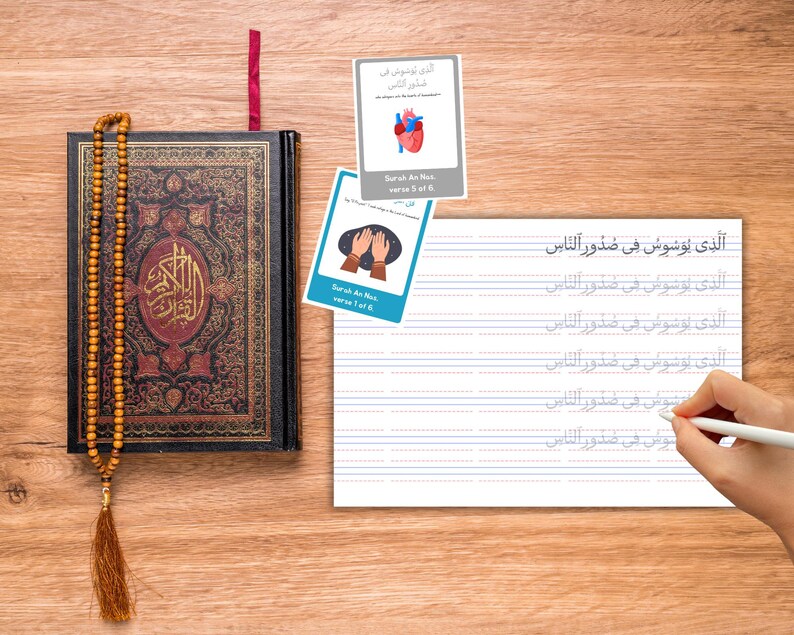 القرآن الكريم
ٱلَّذِى يُوَسْوِسُ فِى
صُدُورِ ٱلنَّاسِ
who whispers into the hearts of humankind—
Surah An Nas.
verse 5 of 6.
I seek refuge in the Lord of humankind,
Surah An Nas.
verse 1 of 6.
ٱلَّذِى يُوَسْوِسُ فِى صُدُورِ ٱلنَّاسِ
ٱلَّذِى يُوَسْوِسُ فِى صُدُورِ ٱلنَّاسِ
ٱلَّذِى يُوَسْوِسُ فِى صُدُورِ ٱلنَّاسِ
ٱلَّذِى يُوَسْوِسُ فِى صُدُورِ ٱلنَّاسِ
ٱلَّذِى يُوَسْوِسُ فِى صُدُورِ ٱلنَّاسِ
ٱلَّذِى يُوَسْوِسُ فِى صُدُورِ ٱلنَّاسِ